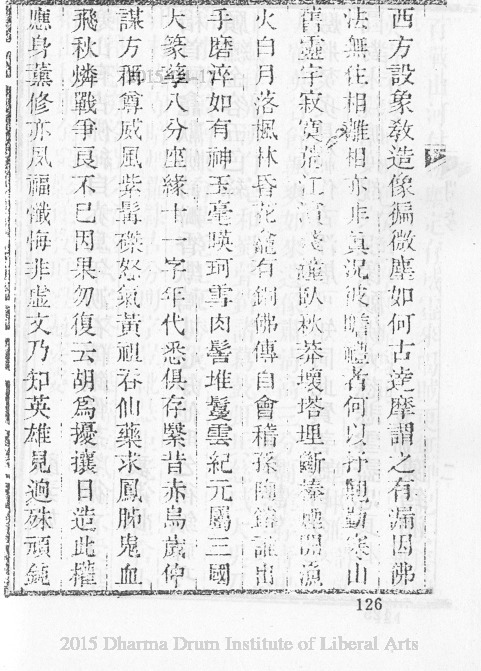 西方設象教造像徧微塵如何古達摩謂之有漏因佛
法無住相離相亦非真況彼瞻禮者何以抒勤寒山
舊靈宇寂寞荒江殘鐘臥秋莽壞塔埋斷榛漁
火白月落楓林昏花龕有銅佛傳自會稽孫出
手磨淬如有神玉毫暎珂雪肉髻堆鬘雲紀元屬三國
大篆八分座緣十一字年代悉俱存緊昔赤烏歲仲
謀方稱尊威風紫髯磔怒氣黃祖吞仙藥求鳳肺鬼血
飛秋燐戰爭良不已因果勿復云胡為擾攘日造此權
應身薰修亦夙福懺悔非虛文乃知英雄見迥殊頑鈍
126
2015 Dharma Drum Institute of Liberal Arts